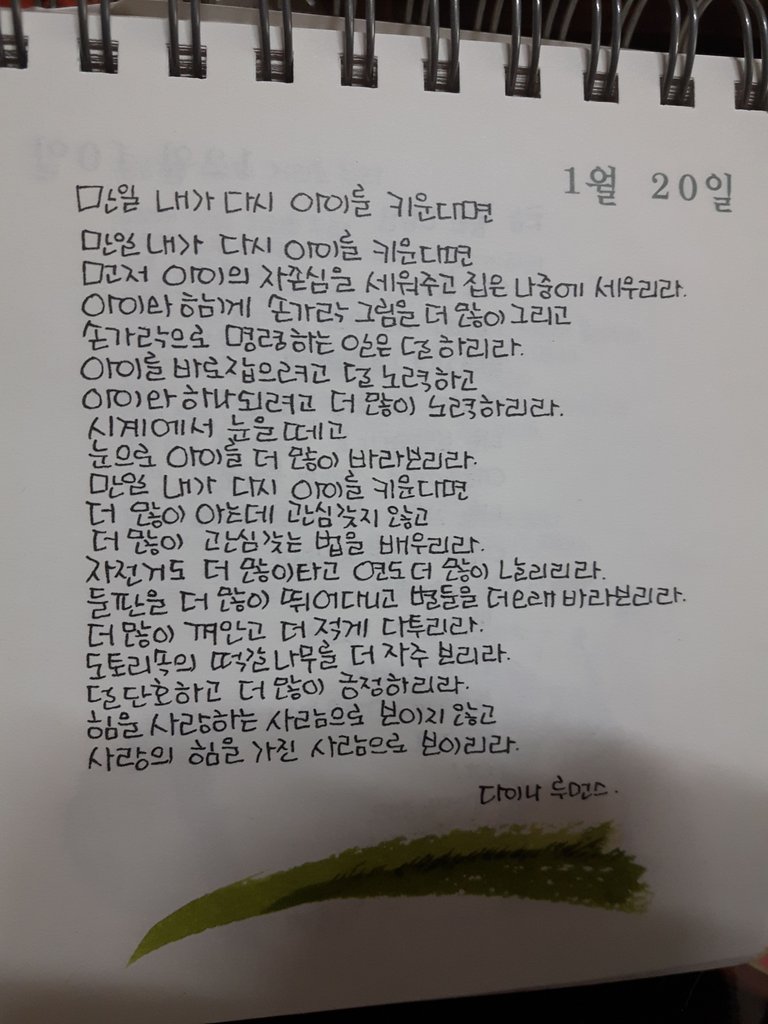 1월 20일
만일 내가 다시 아이를 키운다면
만일 내가 다시 아이를 키운다면
먼저 아이의 자존심을 세워주고 집은 나중에 세우리라.
아이와 함께 손가락 그림을 더 많이 그리고
손가락으로 명령하는 일은 덜 하리라.
아이를 바로잡으려고 덜 노력하고
아이와 하나되려고 더 많이 노력하리라.
시계에서 눈을 떼고
눈으로 아이를 더 많이 바라보리라.
만일 내가 다시 아이를 키운다면
더 많이 아는데 관심갖지 않고
더 많이 관심갖는 법을 배우리라.
자전거도 더 많이타고 연도 더 많이 날리리라.
들판을 더 많이 뛰어다니고 별들을 더오래 바라보리라.
더 많이 껴안고 더 적게 다투리라.
도토리속의 떡갈나무를 더 자주 보리라.
덜 단호하고 더 많이 긍정하리라.
힘을 사랑하는 사람으로 보이지 않고
사랑의 힘을 가진 사람으로 보이리라.
다이나 루먼스.